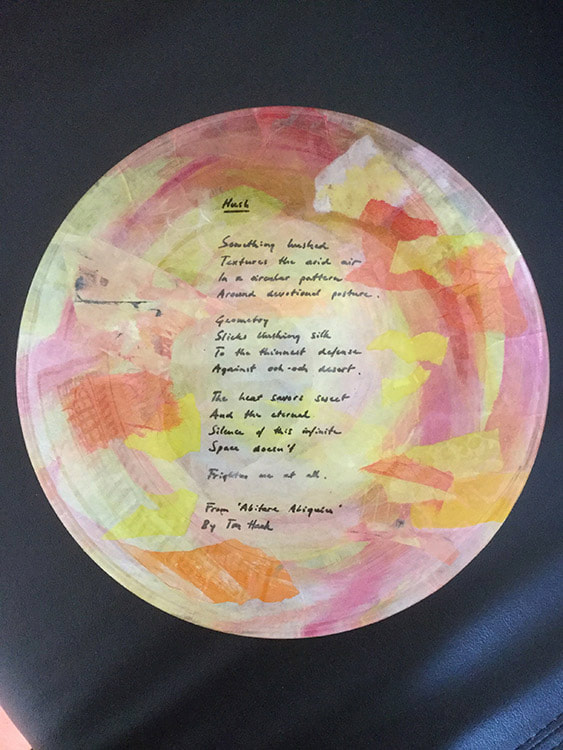 Hush
Something hushed
Textures the arid air
In a circular pattern
Around devotional posture.
Geometry
Slicks blushing silk
To the thinnest defense
Against ooh-ooh desert.
The heat savors sweet
And the eternal
Silence of this infinite
Space doesn't
Frighten me at all.
From 'Abitare Abiquiu'
By Tom Hack